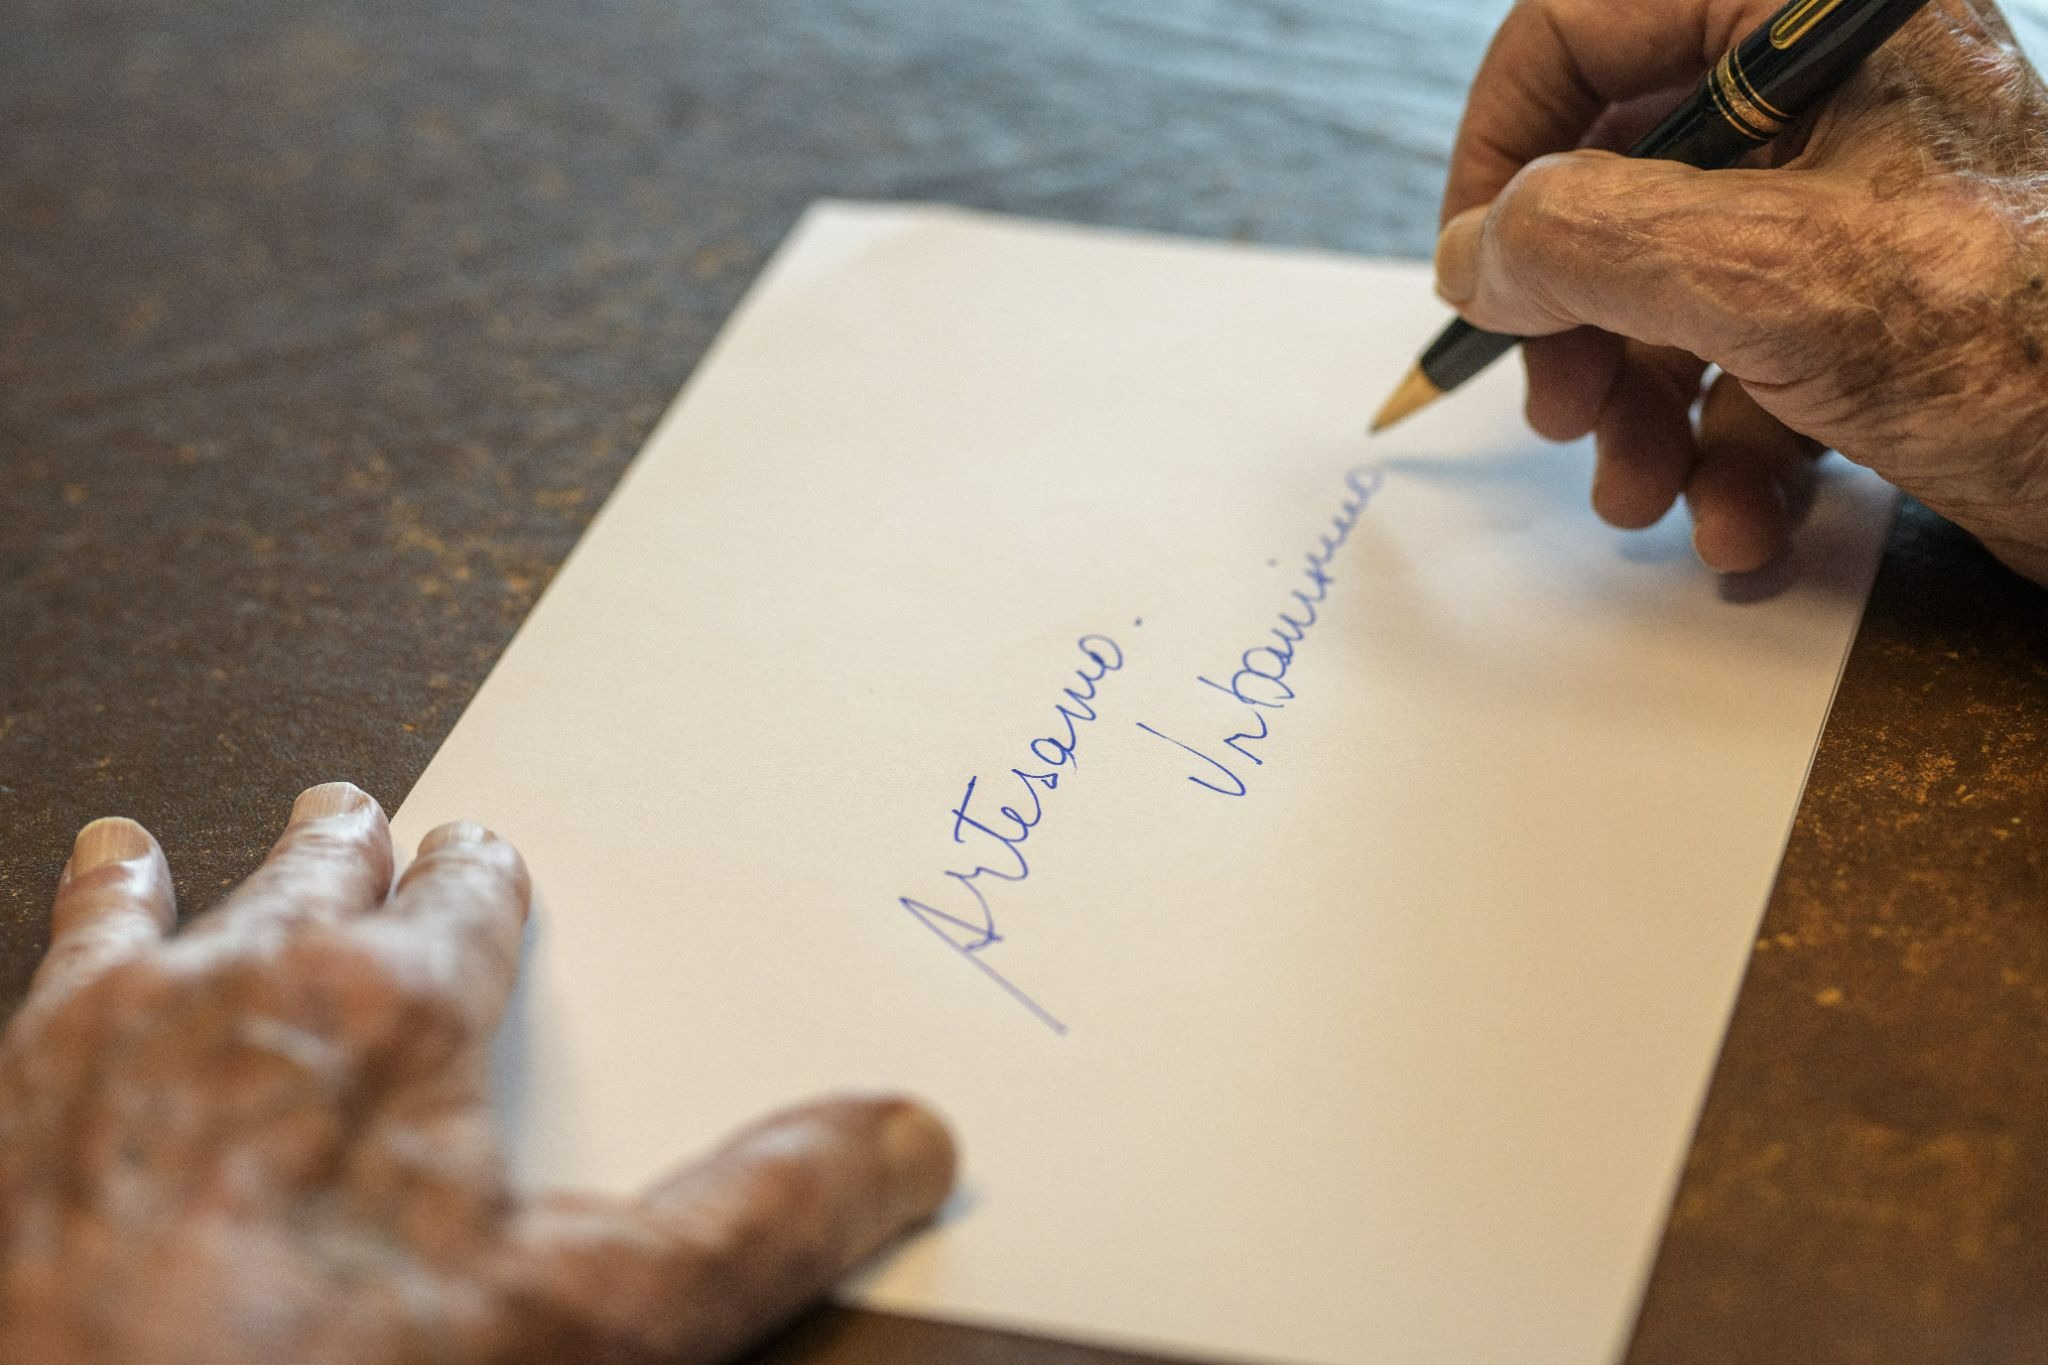 Artesano.
Urbanismo